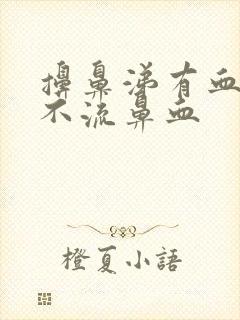 擤鼻涕有血
不流鼻血
橙夏小語